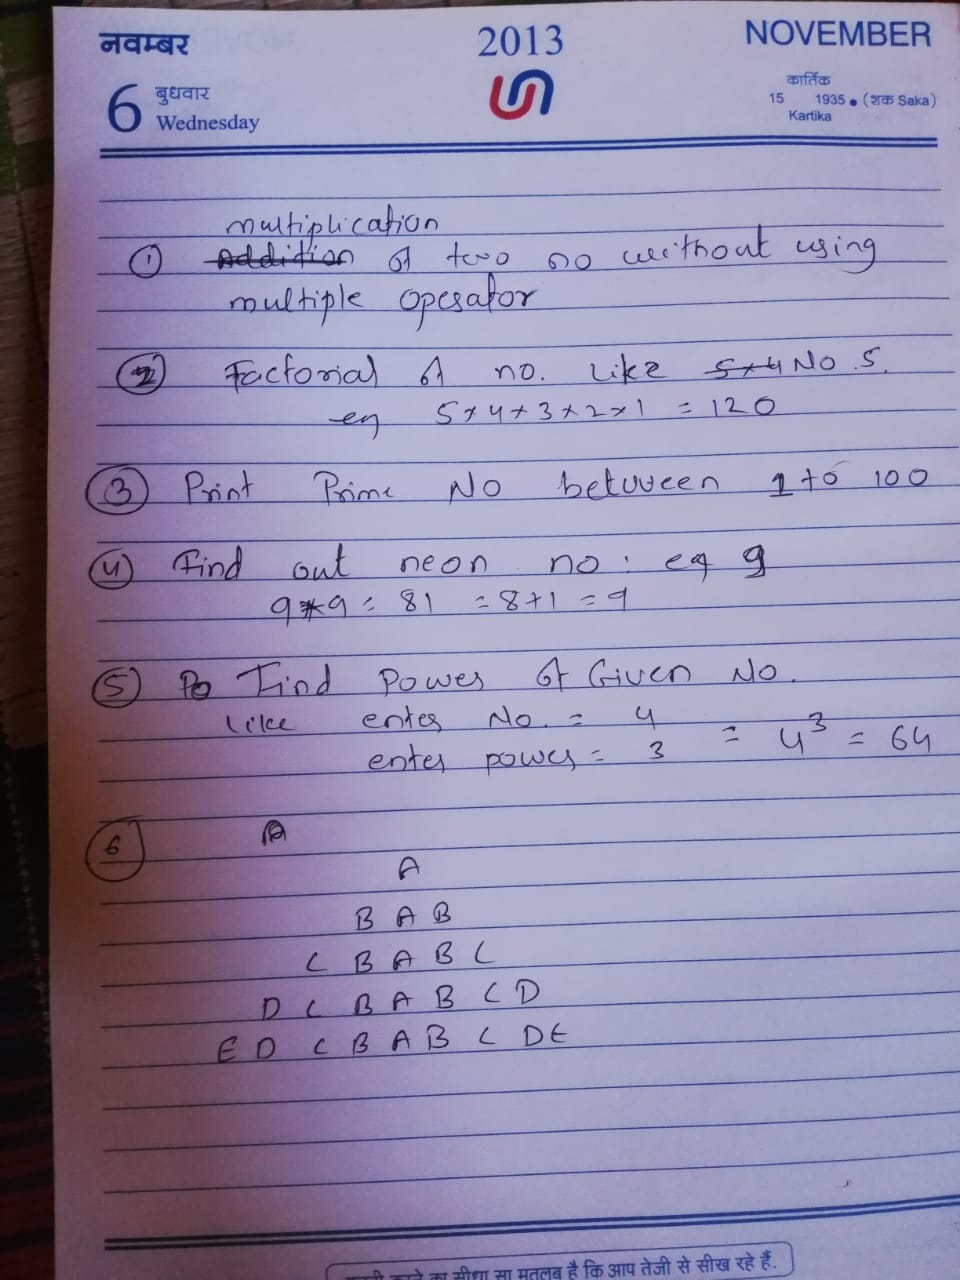 नवम्बर 2013 NOVEMBER
6 बुधवार
Wednesday
कार्तिक
15 1935 • (शक Saka)
Kartika
multiplication
① Addition of two no without using
multiple operator
② Factorial of no. Like 5*4 No 5.
eg 5*4*3*2*1 = 120
③ Print Prime No between 1 to 100
④ Find out neon no: eg 9
9*9 = 81 = 8+1 = 9
⑤ Po Find Power of Given No.
Like enter No. = 4
enter power = 3 = 4³ = 64
⑥ A
A
B A B
C B A B C
D C B A B C D
E D C B A B C D E
का सीधा सा मतलब है कि आप तेजी से सीख रहे हैं.